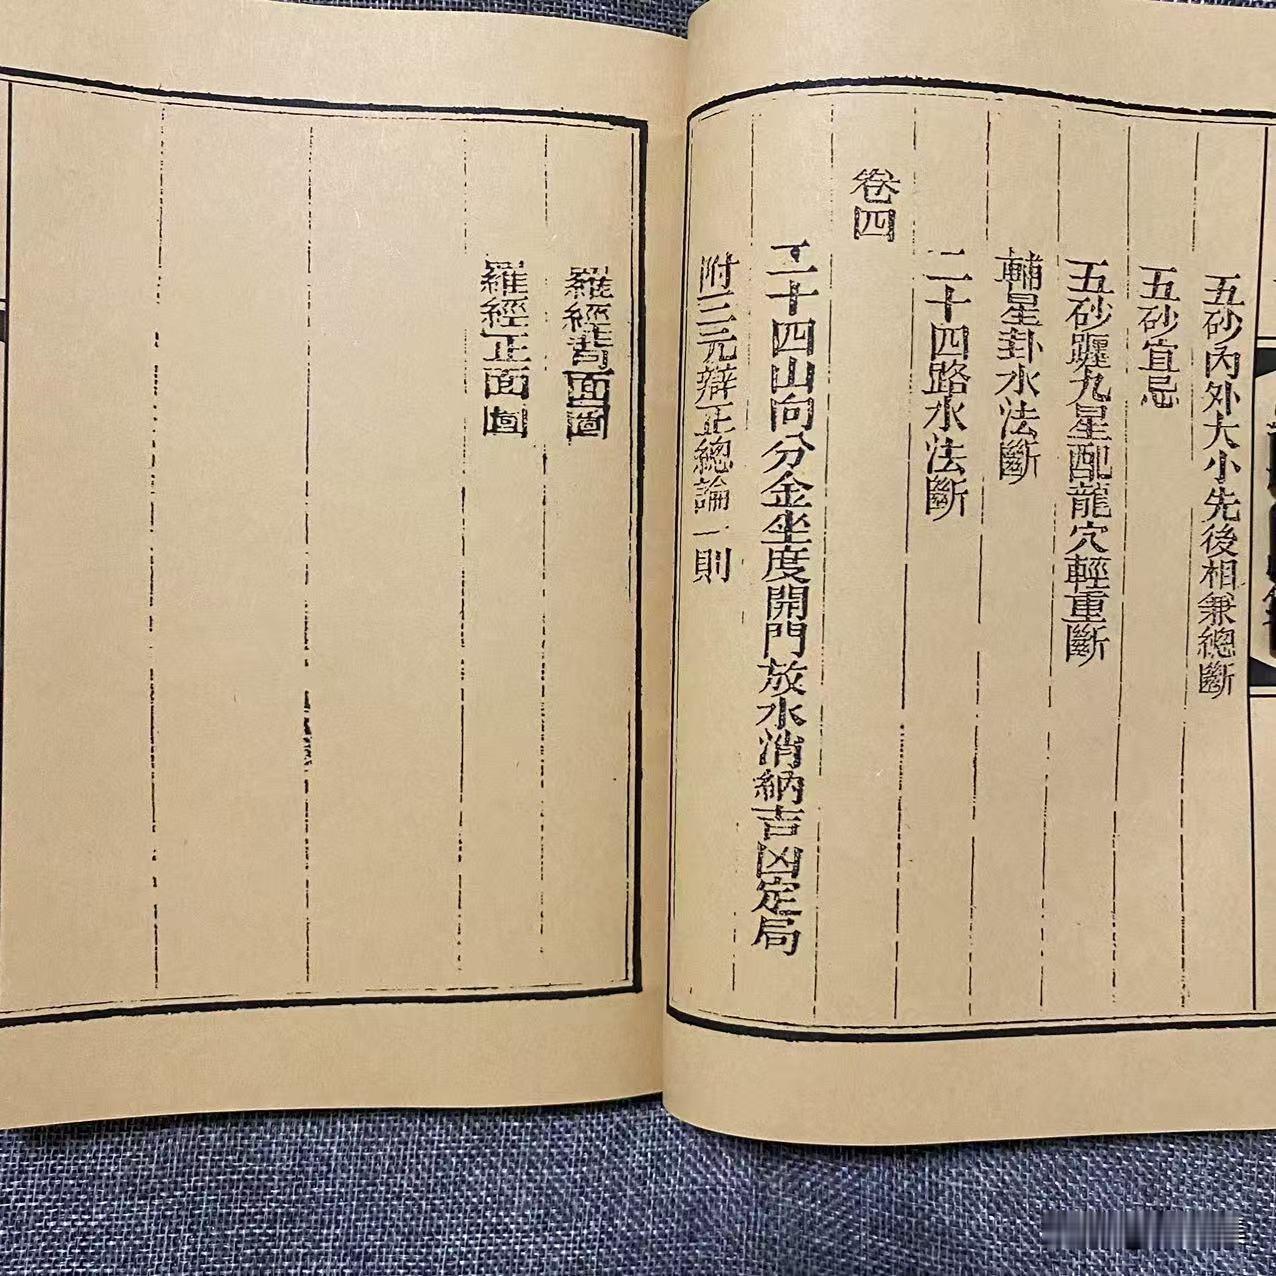 五砂內外大小先後相兼總斷
五砂宜忌
五砂躔九星配龍穴輕重斷
輔星卦水法斷
二十四路水法斷
卷四
二十四山向分金坐度開門放水消納吉凶定局
附三元辯正總論一則
羅經背面圖
羅經正面圖